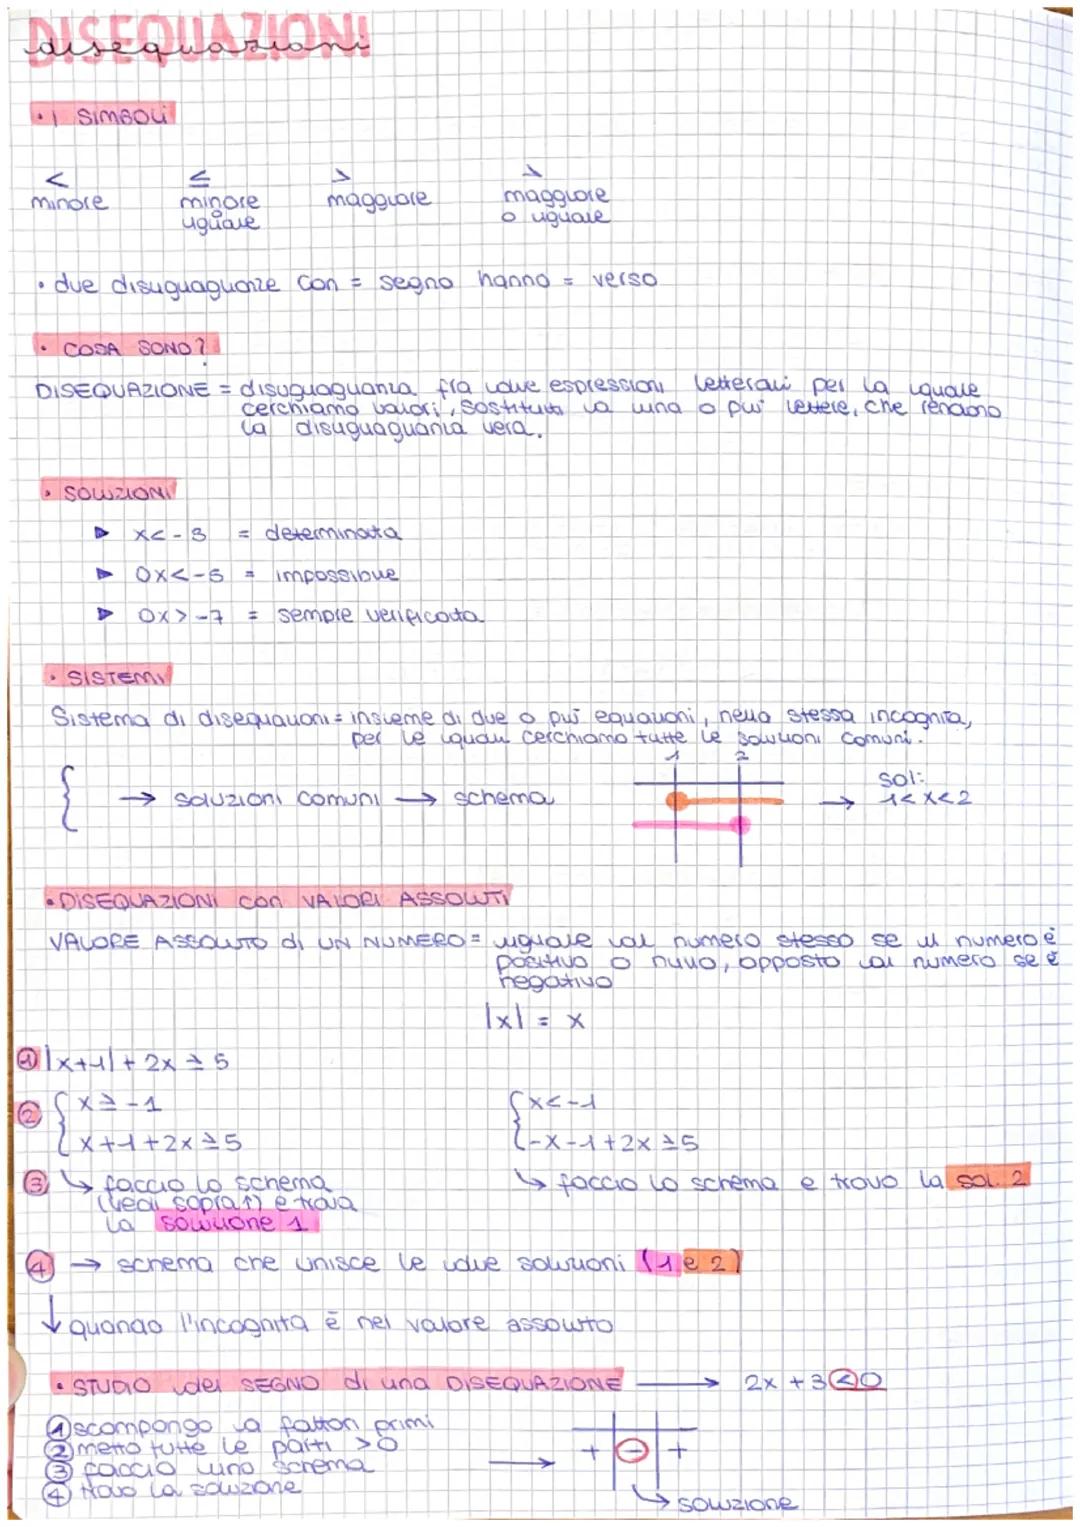 DISEQUAZIONI
disequazioni
• I SIMBOLI
< ≤ > ≥
minore minore maggiore maggiore
uguale o uguale
• due disuguaglianze con = segno hanno = verso
• COSA SONO?
DISEQUAZIONE = disuguaglianza fra due espressioni letterali per la quale
cerchiamo valori, sostituiti a una o più lettere, che rendono
la disuguaglianza vera.
• SOLUZIONI
▶ x<-3 = determinata
▶ 0x<-5 = impossibile
▶ 0x>-7 = sempre verificata
• SISTEMI
Sistema di disequazioni = insieme di due o più equazioni, nella stessa incognita,
per le quali cerchiamo tutte le soluzioni comuni.
1 2
{ → soluzioni comuni → schema → sol:
1<x<2
• DISEQUAZIONI con VALORI ASSOLUTI
VALORE ASSOLUTO di UN NUMERO = uguale al numero stesso se il numero è
positivo o nullo, opposto al numero se è
negativo
|x| = x
① |x+1| + 2x ≥ 5
② { x ≥ -1 { x < -1
x+1+2x ≥ 5 -x-1+2x ≥ 5
③ ↳ faccio lo schema ↳ faccio lo schema e trovo la sol. 2
(vedi sopra ↑) e trova
la soluzione 1
④ → schema che unisce le due soluzioni (1 e 2)
↓ quando l'incognita è nel valore assoluto
• STUDIO del SEGNO di una DISEQUAZIONE → 2x + 3 < 0
① scompongo a fattori primi
② metto tutte le parti > 0 + - +
③ faccio uno schema →
④ trovo la soluzione ↳ soluzione